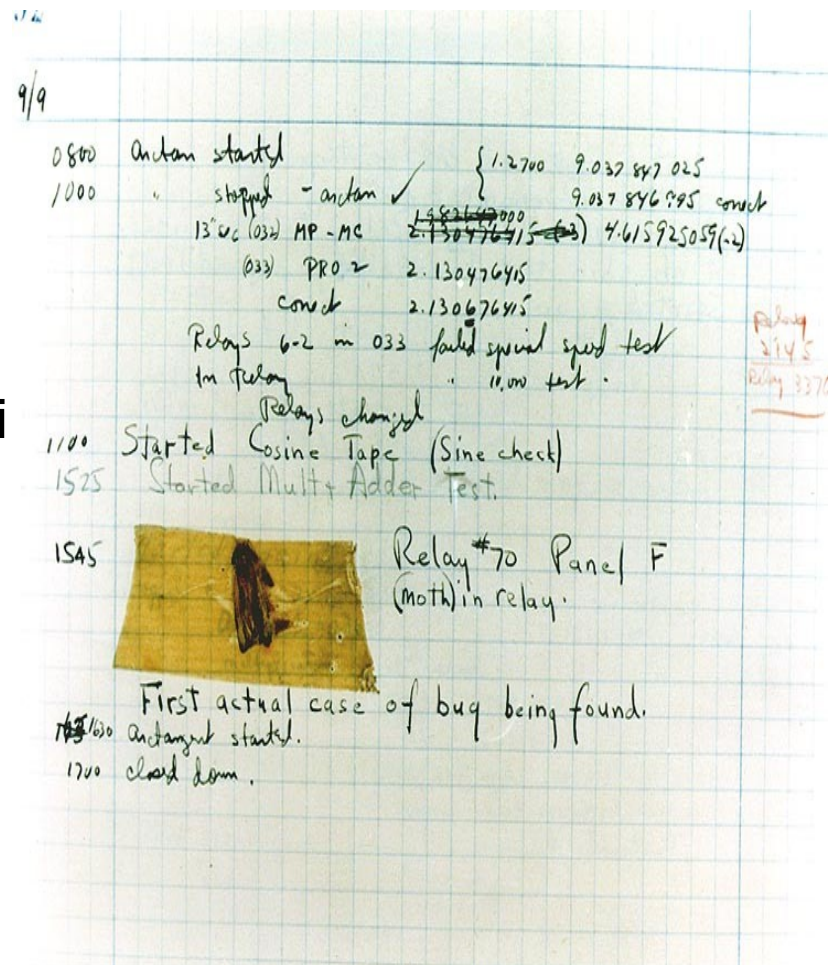 9/9
0800 Antan started { 1.2700 9.037 847 025
1000 " stopped - antan ✓ 9.037 846 995 correct
13"uc (032) MP - MC 4.615925059(-2)
(033) PRO 2 2.130476415
correct 2.130676415
Relays 6-2 in 033 failed special speed test
In Relay " 10,000 test .
Relays changed
Relay
2145
Relay 3370
1100 Started Cosine Tape (Sine check)
1525 Started Mult + Adder Test.
1545 Relay #70 Panel F
(moth) in relay.
First actual case of bug being found.
1630 antangent started.
1700 closed down.
i